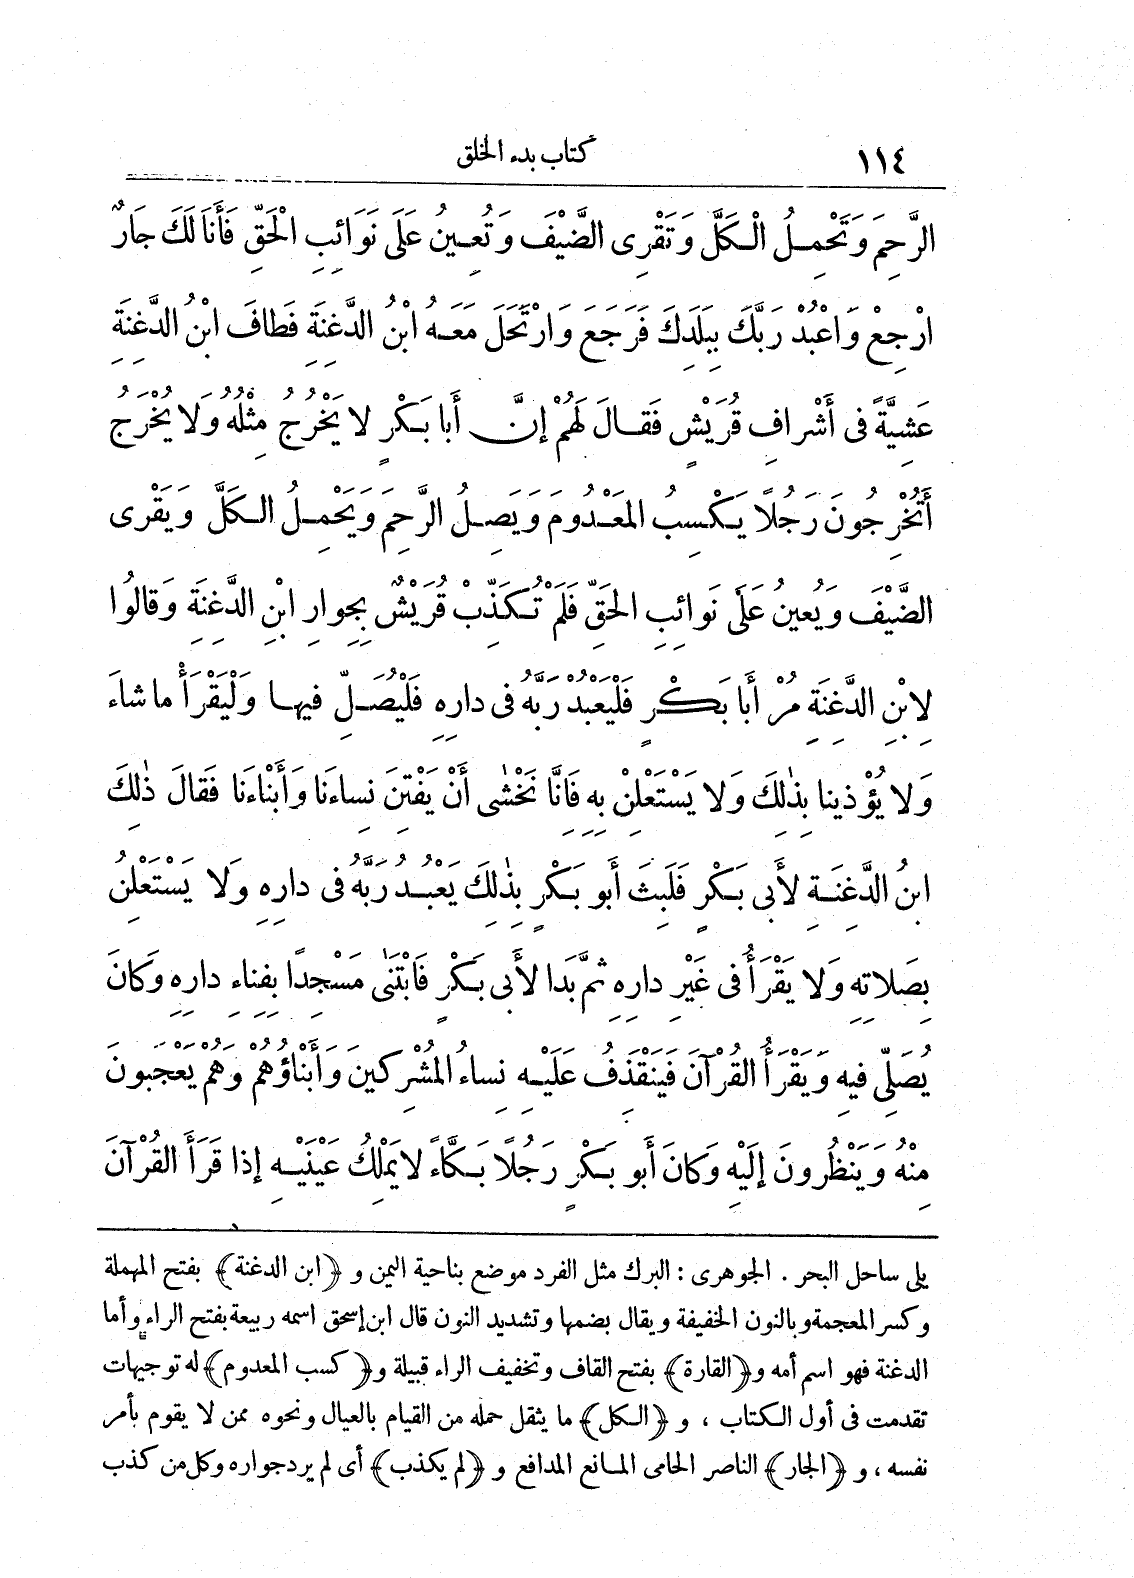 ١١٤ كتاب بدء الخلق
الرَّحِمَ وَتَحْمِلُ الْكَلَّ وَتَقْرِى الضَّيْفَ وَتُعِينُ عَلَى نَوَائِبِ الْحَقِّ فَأَنَا لَكَ جَارٌ
ارْجِعْ وَاعْبُدْ رَبَّكَ بِبَلَدِكَ فَرَجَعَ وَارْتَحَلَ مَعَهُ ابْنُ الدَّغِنَةِ فَطافَ ابْنُ الدَّغِنَةِ
عَشِيَّةً فى أَشْرافِ قُرَيْشٍ فَقالَ لَهُمْ إنَّ أَبا بَكْرٍ لا يَخْرُجُ مِثْلُهُ وَلا يُخْرَجُ
أَتُخْرِجُونَ رَجُلاً يَكْسِبُ المَعْدُومَ وَيَصِلُ الرَّحِمَ وَيَحْمِلُ الكَلَّ وَيَقْرِى
الضَّيْفَ وَيُعِينُ عَلَى نَوائِبِ الحَقِّ فَلَمْ تُكَذِّبْ قُرَيْشٌ بِجِوارِ ابْنِ الدَّغِنَةِ وَقالُوا
لِابْنِ الدَّغِنَةِ مُرْ أَبَا بَكْرٍ فَلْيَعْبُدْ رَبَّهُ فى دارِهِ فَلْيُصَلِّ فيها وَلْيَقْرَأْ ما شاءَ
وَلا يُؤْذينا بِذٰلِكَ وَلا يَسْتَعْلِنْ بِهِ فَانَّا نَخْشٰى أَنْ يَفْتِنَ نِساءَنَا وَأَبْناءَنَا فَقالَ ذٰلِكَ
ابنُ الدَّغِنَةِ لأَبِى بَكْرٍ فَلَبِثَ أَبو بَكْرٍ بِذٰلِكَ يَعْبُدُ رَبَّهُ فى دارِهِ وَلا يَسْتَعْلِنُ
بِصَلاتِهِ وَلا يَقْرَأُ فى غَيْرِ دارِهِ ثمَّ بَدَا لأَبِى بَكْرٍ فَابْتَنٰى مَسْجِدًا بِفِناءِ دارِهِ وَكانَ
يُصَلِّى فيهِ وَيَقْرَأُ القُرْآنَ فَيَنْقَذِفُ عَلَيْهِ نِساءُ المُشْرِكينَ وَأَبْناؤُهُمْ وَهُمْ يَعْجَبُونَ
مِنْهُ وَيَنْظُرونَ إلَيْهِ وَكانَ أَبو بَكْرٍ رَجُلاً بَكَّاءً لايَمْلِكُ عَيْنَيْهِ إذا قَرَأَ القُرْآنَ
يلى ساحل البحر . الجوهرى : البرك مثل الفرد موضع بناحية اليمن و ﴿ابن الدغنة﴾ بفتح المهملة
وكسر المعجمة وبالنون الخفيفة ويقال بضمها وتشديد النون قال ابن إسحق اسمه ربيعة بفتح الراء وأما
الدغنة فهو اسم أمه و﴿القارة﴾ بفتح القاف وتخفيف الراء قبيلة و﴿كسب المعدوم﴾ له توجيهات
تقدمت فى أول الكتاب ، و ﴿الكل﴾ ما يثقل حمله من القيام بالعيال ونحوه ممن لا يقوم بأمر
نفسه ، و ﴿الجار﴾ الناصر الحامى المانع المدافع و ﴿لم يكذب﴾ أى لم يرد جواره وكل من كذب